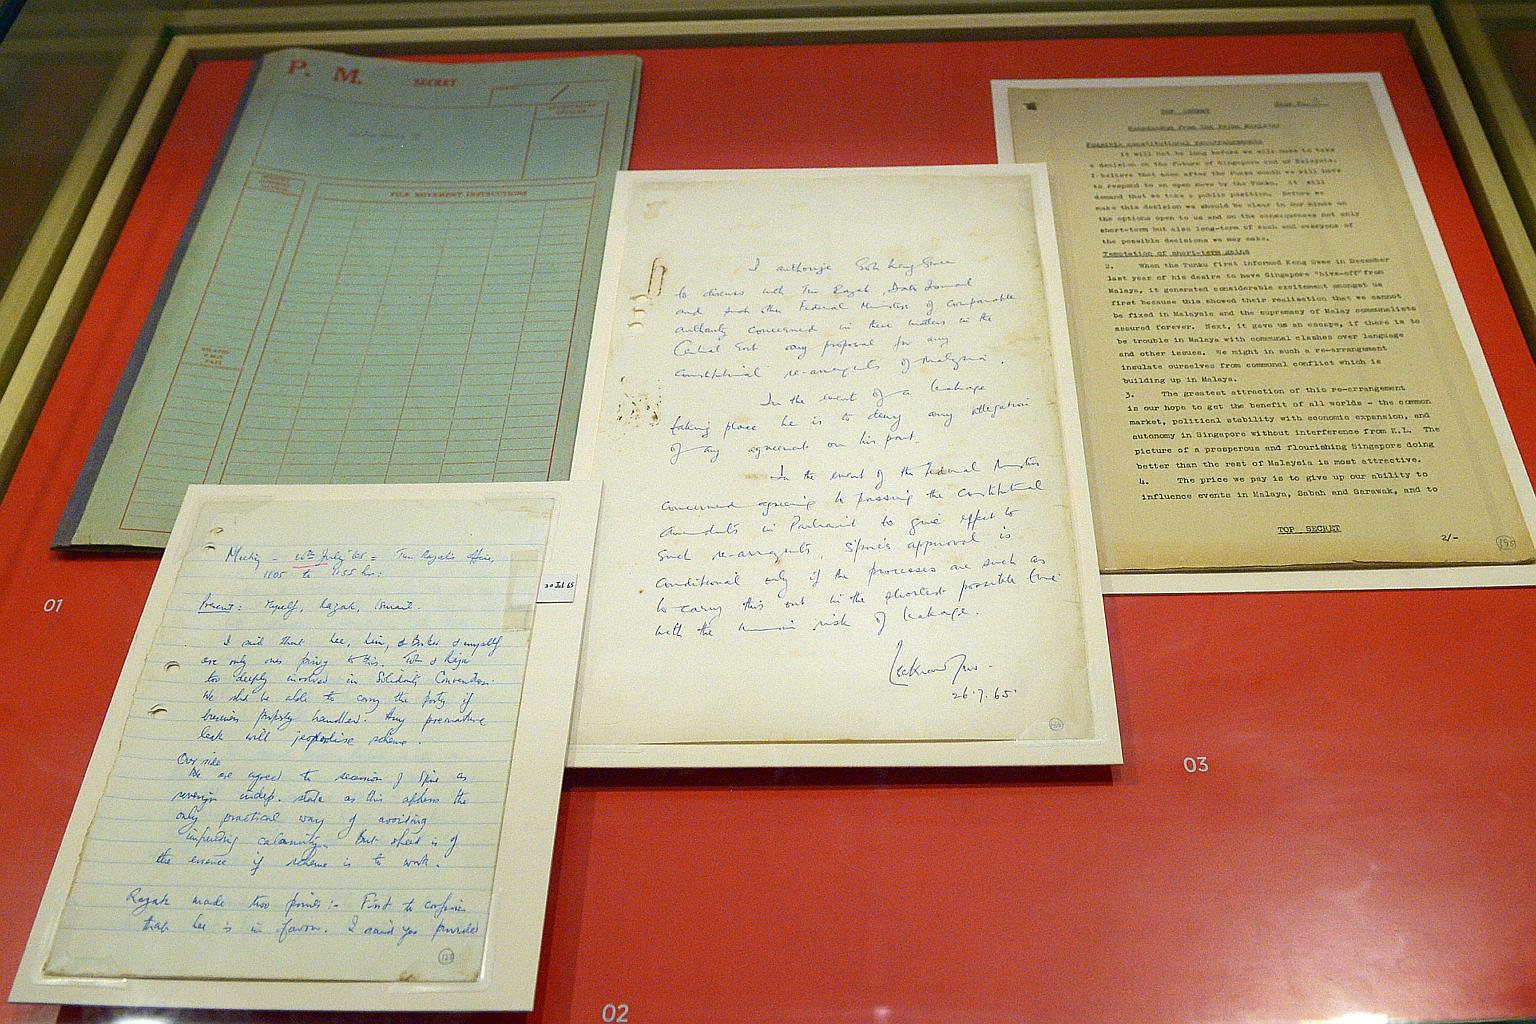 P. M.
SECRET
FILE MOVEMENT INSTRUCTIONS
01
Meeting - 20th July '65 = Tun Razak's office,
1805 to 1855 hr:
30 Jul 65
Present: Myself, Razak, Ismail.
I said that Lee, Lim, & Barker & myself
are only ones privy to this. Toh & Raja
too deeply involved in Solidarity Convention.
We shd be able to carry the party if
business properly handled. Any premature
leak will jeopardise scheme.
Our side
We are agreed to secession of S'pore as
sovereign indep. state as this affords the
only practical way of avoiding
impending calamity. But speed is of
the essence if scheme is to work.
Razak made two points :- First to confirm
that Lee is in favour. I said yes provided
02
I authorise Goh Keng Swee
to discuss with Tun Razak, Dato Ismail
and such other Federal Ministers of comparable
authority concerned in these matters in the
Central Govt any proposal for any
constitutional re-arrangements of Malaysia.
In the event of a leakage
taking place he is to deny any allegation
of any agreement on his part.
In the event of the Federal Ministers
concerned agreeing to passing the constitutional
amendments in Parliament to give effect to
such re-arrangements S'pore's approval is
conditional only if the processes are such as
to carry this out in the shortest possible time
with the minimum risk of leakage.
Lee Kuan Yew.
26.7.65.
03
TOP SECRET
Memorandum from the Prime Minister
Possible constitutional rearrangements
It will not be long before we will have to take
a decision on the future of Singapore and of Malaysia.
I believe that soon after the Puasa month we will have
to respond to an open move by the Tunku. It will
demand that we take a public position. Before we
make this decision we should be clear in our minds on
the options open to us and on the consequences not only
short-term but also long-term of each and everyone of
the possible decisions we may make.
Temptation of short-term gains
2. When the Tunku first informed Keng Swee in December
last year of his desire to have Singapore "hive-off" from
Malaya, it generated considerable excitement amongst us
first because this showed their realisation that we cannot
be fixed in Malaysia and the supremacy of Malay communalists
assured forever. Next, it gave us an escape, if there is to
be trouble in Malaya with communal clashes over language
and other issues. We might in such a re-arrangement
insulate ourselves from communal conflict which is
building up in Malaya.
3. The greatest attraction of this re-arrangement
is our hope to get the benefit of all worlds - the common
market, political stability with economic expansion, and
autonomy in Singapore without interference from K.L. The
picture of a prosperous and flourishing Singapore doing
better than the rest of Malaysia is most attractive.
4. The price we pay is to give up our ability to
influence events in Malaya, Sabah and Sarawak, and to
TOP SECRET
2/-